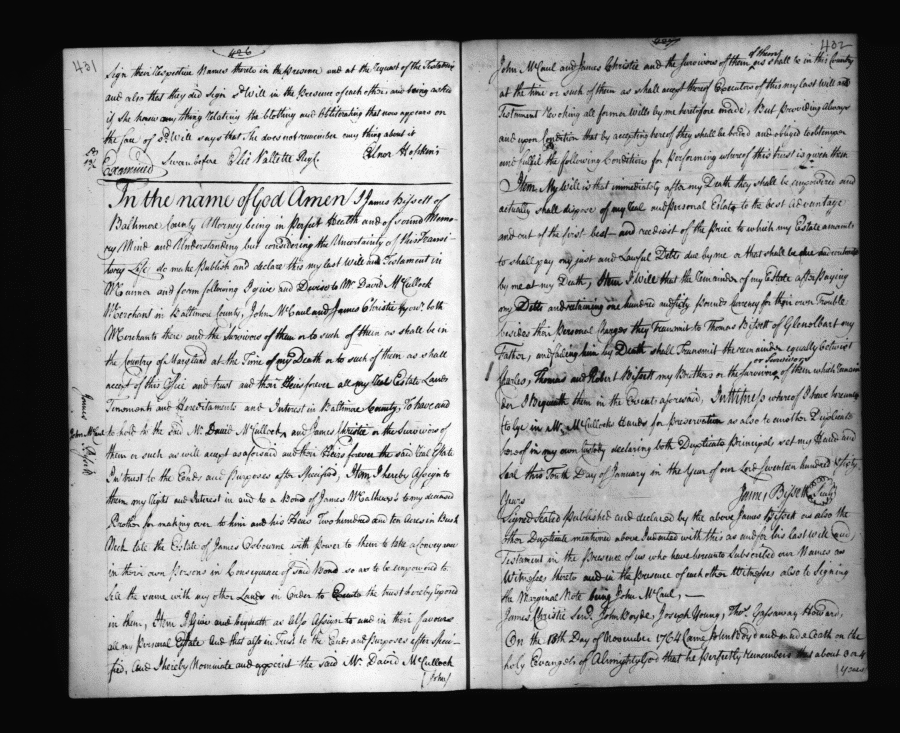 431
426
Sign their Respective Names thereto in the Presence and at the Request of the Testator
and also that they did Sign sd. Will in the Presence of each other and being asked
if she knew any thing relating the blotting and Obliterating that now appears on
the face of sd. Will says that she does not remember any thing about it
Examined Sworn before Elie Vallette Regr. Elnor Hopkins
In the name of God Amen I James Bissett of
Baltimore County Attorney being in Perfect Health and of sound Memo-
ry Mind and Understanding but considering the Uncertainty of this Transi-
tory Life do make Publish and declare this my last Will and Testament in
Manner and form following I give and Devise to Mr. David McCullock
Merchant in Baltimore County, John McCaul and James Christie Junr. both
Merchants there and the survivors of them or to such of them as shall be in
the Country of Maryland at the Time of my Death or to such of them as shall
accept of this Office and trust and their Heirs forever all my Real Estate Lands
Tenements and Hereditaments and Interest in Baltimore County, To have and
to hold to the said Mr. David McCullock and James Christie or the survivors of
John McCaul
James Bissett
them or such as will accept as aforesaid and their Heirs forever the said Real Estate
In trust to the Ends and Purposes after Specified, Item I hereby Assign to
them my Right and Interest in and to a Bond of James McCathews to my deceased
Brother for making over to him and his Heirs Two hundred and ten Acres in Bush
Neck late the Estate of James Osbourne with power to them to take a Conveyance
in their own Persons in Consequence of said Bond so as to be empowered to
sell the same with my other Lands in Order to Execute the trust hereby reposed
in them, Item I Give and bequeath as also Assign to and in their favours
all my Personal Estate and that also in Trust to the Ends and Purposes after Speci-
fied, And I hereby Nominate and appoint the said Mr. David McCullock
(John)
432
John McCaul and James Christie and the survivors of them as shall be in this County
of them
at the time or such of them as shall accept thereof Executors of this my last Will and
Testament Revoking all former Wills by me heretofore made, But Providing always
and upon Condition that by accepting hereof they shall be bound and obliged to obtemper
and fulfil the following Conditions for performing whereof this trust is given them
Item My Will is that immediately after my Death they shall be empowered and
actually shall dispose of my Real and Personal Estate to the best advantage
and out of the first best and readiest of the Price to which my Estate amounts
to shall pay my just and Lawful Debts due by me or that shall be due
by me at my Death, Item I Will that the Remainder of my Estate after paying
my Debts and retaining one hundred and fifty Pounds Currency for their own Trouble
besides their Personal Charges they Transmit to Thomas Bissett of Glenolbart my
Father, and failing him by Death shall Transmit the remainder equally betwixt
Charles, Thomas and Robert Bissett my Brothers or the surviving of them which Remain
or survivors
der I Bequeath them in the Events aforesaid, In Witness whereof I have hereunto
to lye in Mr. McCullocks Hands for Preservation as also to another Duplicate
hereof in my own Custody declaring both Duplicate Principals set my Hand and
Seal this Tenth Day of January in the Year of our Lord Seventeen hundred & Sixty
Years James Bissett Seal
Signed Sealed Published and declared by the above James Bissett as also the
other Duplicate mentioned above Indented with this as and for his Last Will and
Testament in the Presence of us who have hereunto Subscribed our Names as
Witnesses thereto and in the Presence of each other Witnesses also to Signing
the Marginal Note being John McCaul, —
James Christie Senr. John Boyde, Joseph Young, Thos. Gassaway Howard,
On the 13th Day of November 1764 Came John Boyde and made Oath on the
holy Evangels of Almighty God that he perfectly remembers that about 3 or 4
(Years)